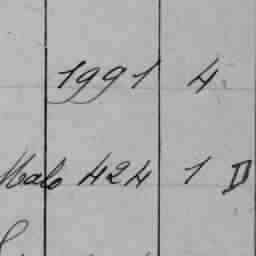 1991 4
Malo 424 1 D